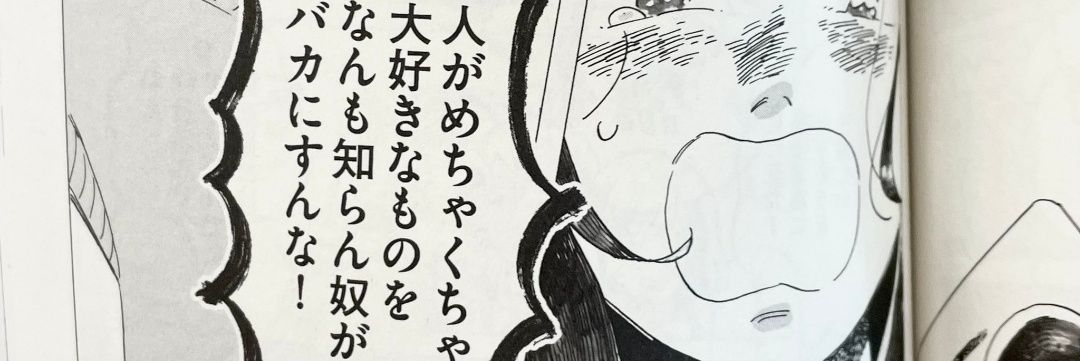 人がめちゃくちゃ
大好きなものを
なんも知らん奴が
バカにすんな！